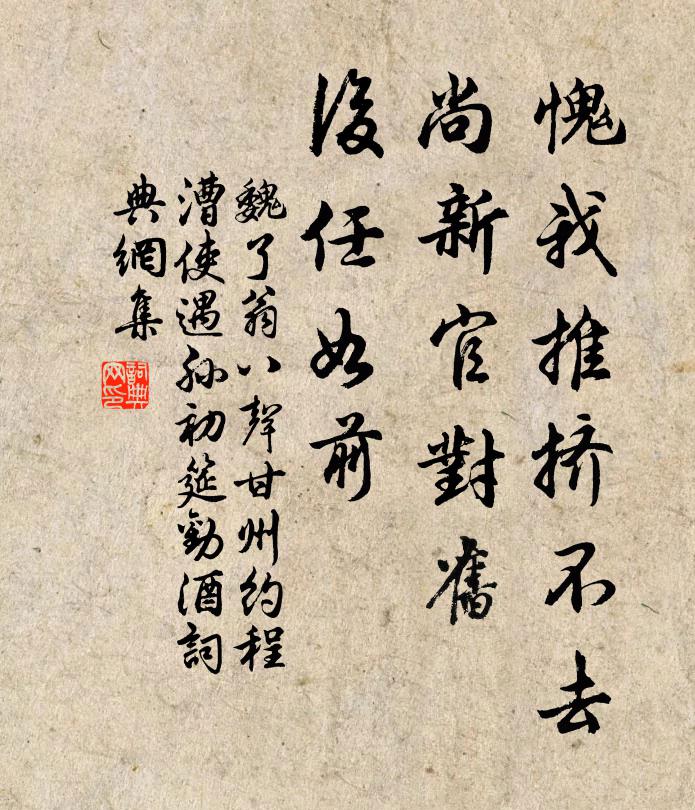 愧我推挤不去
尚新官對舊
後任如前
魏了翁八聲甘州約程
漕使遇孫初筵勸酒詞
典網集
詞典網印